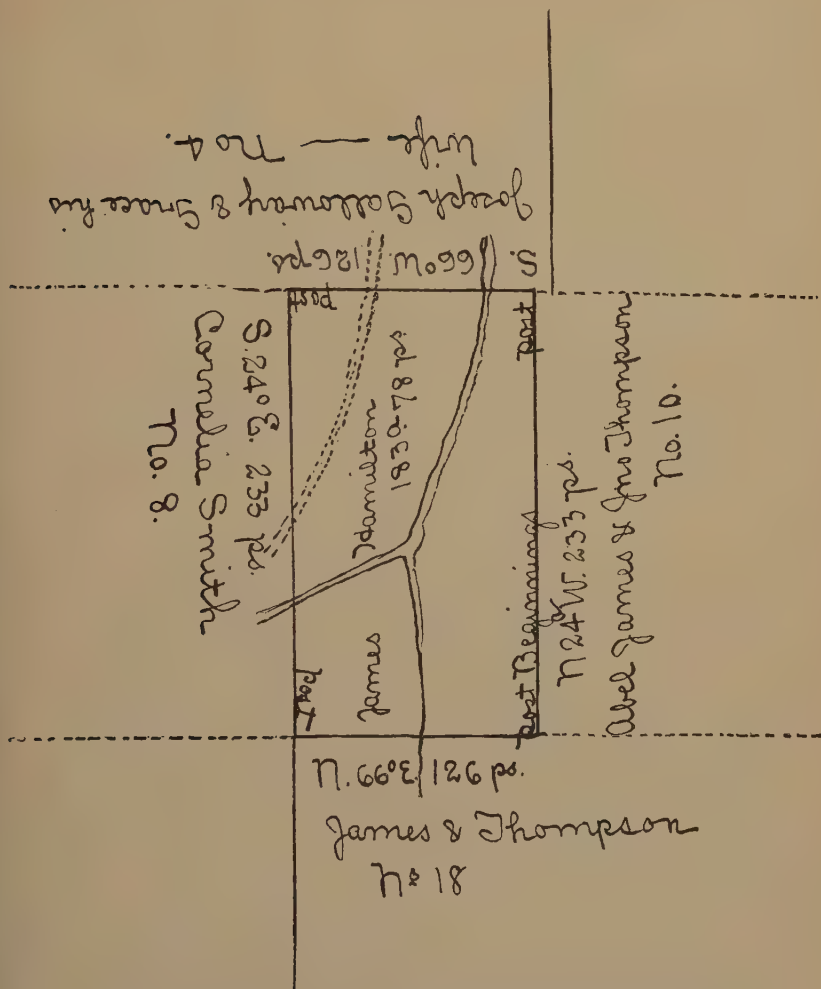 Joseph Galloway & Grace his
Wife — No 4.
S. 66° W. 126 ps.
post
post
S. 24° E. 233 ps.
Cornelia Smith
No. 8.
James Hamilton
183a-78 ps
post Beginnings
N 24° W. 233 ps.
Abel James & Jno Thompson
No. 10.
post
N. 66° E. 126 ps.
James & Thompson
No 18